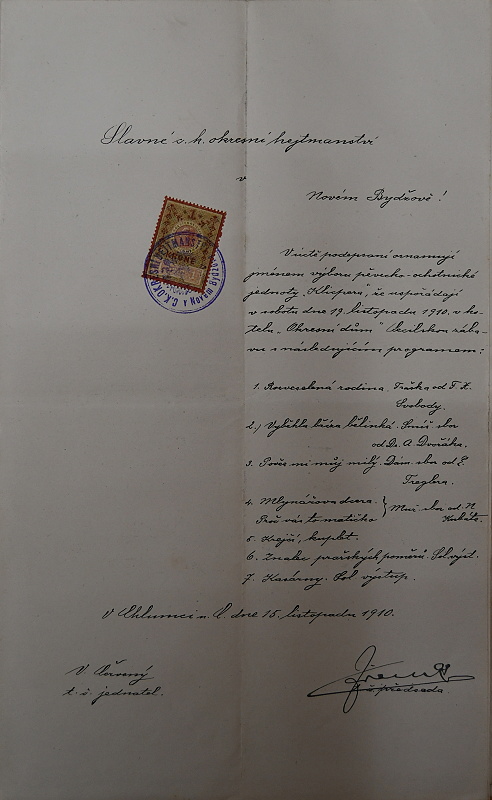 Slavné c. k. okresní hejtmanství
v
Novém Bydžově!
1
KRONE
V úctě podepsaní oznamují
jménem výboru pěvecko-ochotnické
jednoty „Klicpera", že uspořádají
v sobotu dne 19. listopadu 1910, v ho-
telu „Okresní dům" Cecilskou zába-
vu s následujícím programem:
1. Rozveselená rodina. Fraška od F. X.
Svobody.
2.) Vyběhla bříza bělinká. Smíš. sbor
od Dr. A. Dvořáka.
3. Pověz mi můj milý. Dám. sbor od E.
Treglera.
4. Mlynářova dcera. } Muž. sbor od N.
Proč vás to matičko Kubáta.
5. Krejčí, kuplet.
6. Znalec pražských poměrů. Sol. výst.
7. Kasárny. Sol. výstup.
V Chlumci n. C. dne 15. listopadu 1910.
V. Červený
t. č. jednatel.
t. č. předseda.